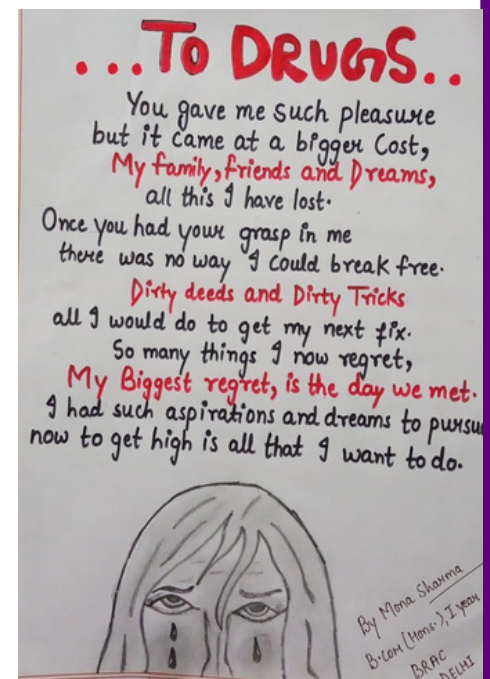 ...TO DRUGS..
You gave me such pleasure
but it came at a bigger Cost,
My family, friends and Dreams,
all this I have lost.
Once you had your grasp in me
there was no way I could break free.
Dirty deeds and Dirty Tricks
all I would do to get my next fix.
So many things I now regret,
My Biggest regret, is the day we met.
I had such aspirations and dreams to pursu
now to get high is all that I want to do.
By Mona Sharma
B.com (Hons.), I year
BRAC
DELHI